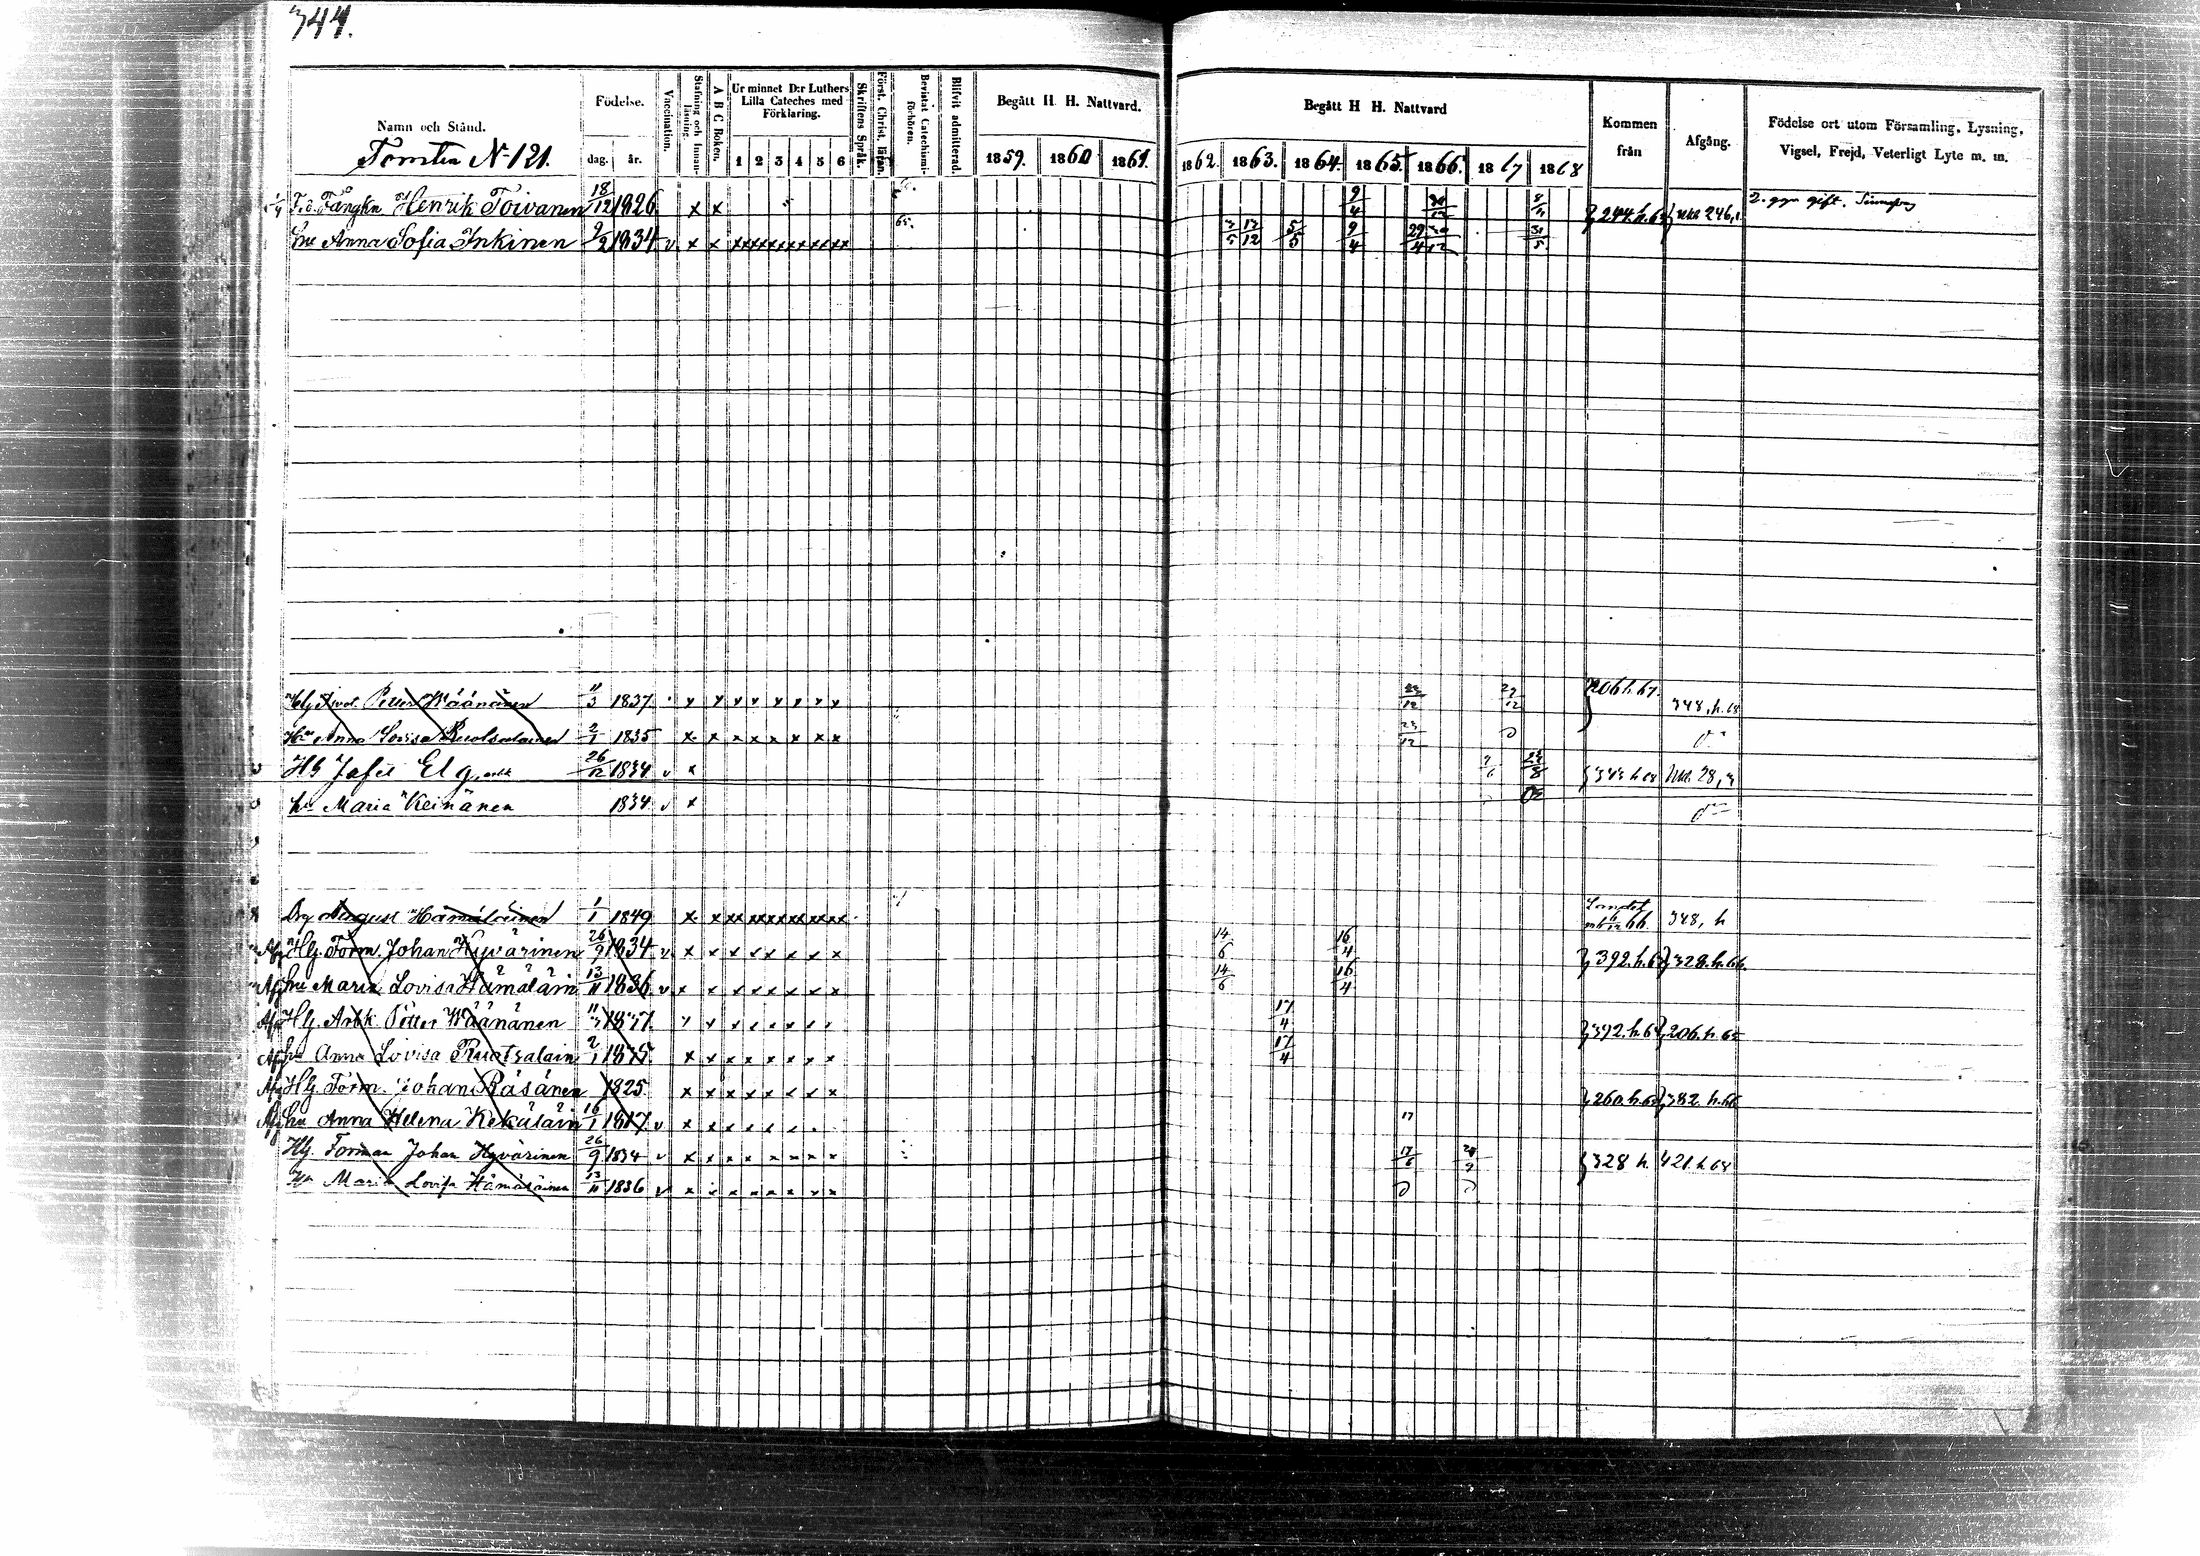 344.
Namn och Stånd. Födelse. dag. år. Vaccination. Stafning och Innanläsning. A B C Boken. Ur minnet D:r Luthers Lilla Cateches med Förklaring. 1 2 3 4 5 6 Skriftens Språk. Först. Christ. läran. Bevistat Catechismiförhören. Blifvit admitterad. Begått H. H. Nattvard. 1859. 1860 1861. Begått H H. Nattvard 1862. 1863. 1864. 1865 1866. 1867 1868 Kommen från Afgång. Födelse ort utom Församling, Lysning, Vigsel, Frejd, Veterligt Lyte m. m.
Tomten No 121.
F.d. Fångkn Henrik Toivanen 18/12 1826 x x 9/4 244.h.6 246 2. ggn gift.
hu Anna Sofia Inkinen 2/2 1834 v x x xxxxxxxxxxx 65. 3/5 13/12 5/5 9/4 29/4 30/12 31/5
Hlg Petter Wäänänen 11/3 1837 x x x x x x x x 23/12 29/12 206 h. 67. 348, h. 68
Hu Anna Lovisa Ruotsalainen 2/1 1835 x x x x x x x x 23/12 D
HG Jafet Elg 26/12 1834 v x 24/8 343 h 68 28,
hu Maria Keinänen 1834 v x Do
Drg August Hämäläinen 1/1 1849 x x xxxxxxxxxx Landet 66. 348, h
Afg Hlg. Form. Johan Hyvärinen 26/9 1834 v x x x x x x x x 14/6 16/4 392.h.6 328.h.66.
Afg hu Maria Lovisa Hämäläin 13/11 1836. v x x x x x x x x 14/6 16/4
Afg Hlg. Arbk. Petter Wäänänen 11/3 1837. 17/4 392.h.6 206.h.65
Afg hu Anna Lovisa Ruotsalain 2/1 1835. x x x x x x x x 17/4
Afg Hlg. Form. Johan Räsänen 1825. x x x x x x x x 260.h.6 382.h.66
Afg hu Anna Helena Kekäläin 16/1 1817. v x x x x x x
Hlg. Forman Johan Hyvärinen 26/9 1834 v x x x x x x x x 17/6 328 h. 421.h 68
Hu Maria Lovisa Hämäläinen 13/11 1836 v x x x x x x x x D D